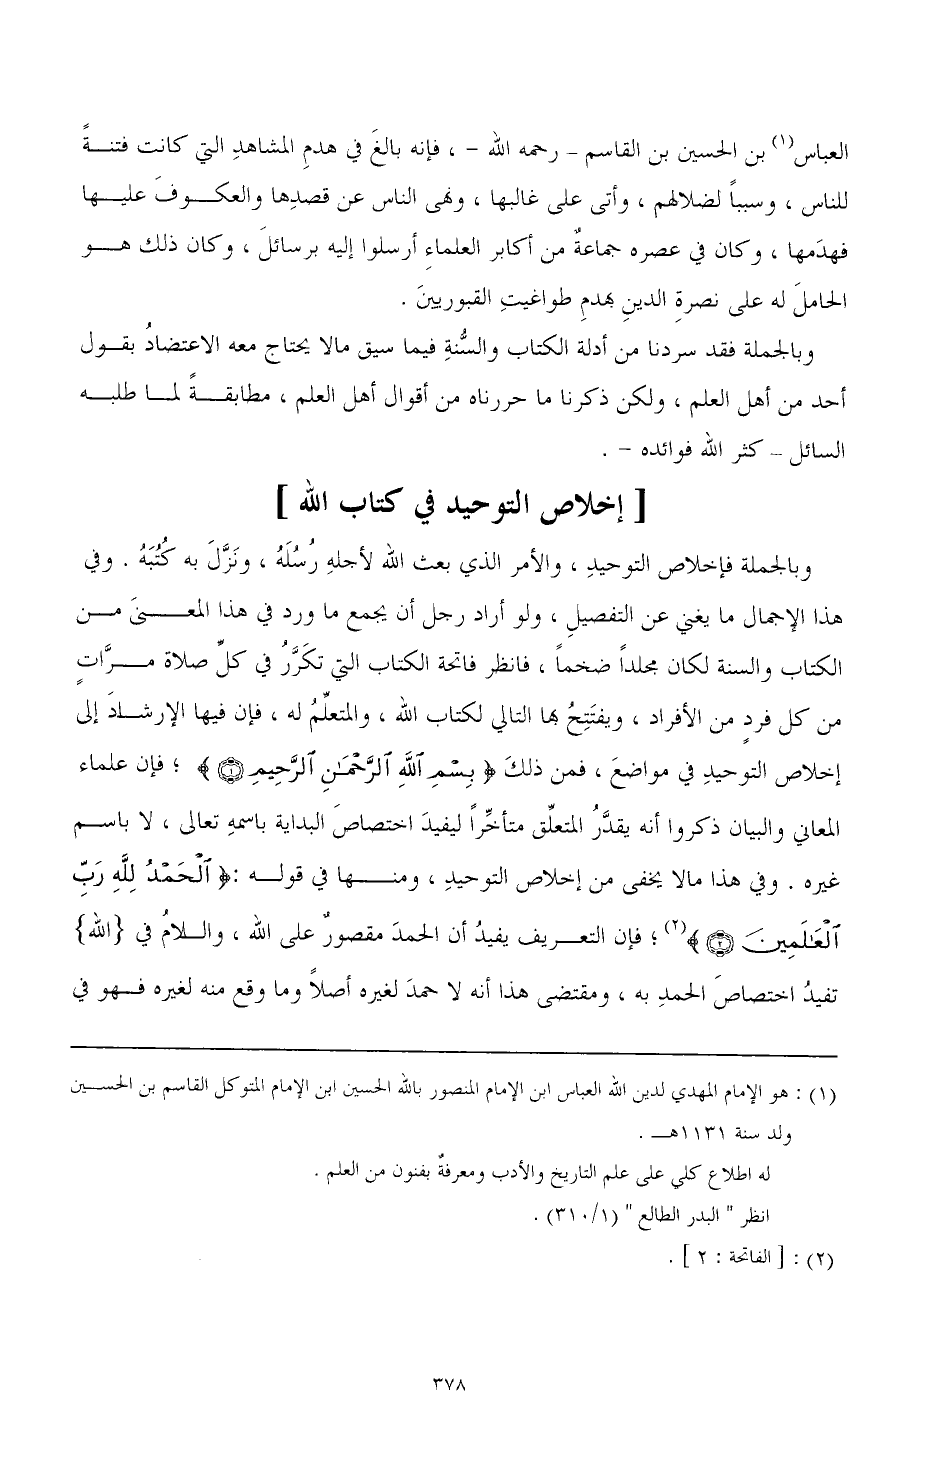 العباس(١) بن الحسين بن القاسم – رحمه الله – ، فإنه بالغَ في هدمِ المشاهدِ التي كانت فتنـــةً
للناس ، وسبباً لضلالهم ، وأتى على غالبها ، ونهى الناس عن قصدِها والعكـــوفَ عليـــها
فهدَمها ، وكان في عصره جماعةٌ من أكابر العلماءِ أرسلوا إليه برسائلَ ، وكان ذلك هـــو
الحاملَ له على نصرةِ الدينِ بهدمِ طواغيتِ القبوريينَ .
وبالجملة فقد سردنا من أدلة الكتاب والسُّنةِ فيما سبق مالا يحتاج معه الاعتضادُ بقـــول
أحد من أهل العلم ، ولكن ذكرنا ما حررناه من أقوال أهل العلم ، مطابقـــةً لمـــا طلبـــه
السائل – كثر الله فوائده – .
[ إخلاص التوحيد في كتاب الله ]
وبالجملة فإخلاص التوحيدِ ، والأمر الذي بعث الله لأجلهِ رُسُلَهُ ، ونَزَّلَ به كُتُبَهُ . وفي
هذا الإجمال ما يغني عن التفصيلِ ، ولو أراد رجل أن يجمع ما ورد في هذا المعـــنىَ مـــن
الكتاب والسنة لكان مجلداً ضخماً ، فانظر فاتحة الكتاب التي تكَرَّرُ في كلِّ صلاة مـــرَّاتٍ
من كل فردٍ من الأفراد ، ويفتَتِحُ بها التالي لكتاب الله ، والمتعلِّمُ له ، فإن فيها الإرشـــادَ إلى
إخلاص التوحيدِ في مواضعَ ، فمن ذلكَ ﴿ بِسْمِ ٱللَّهِ ٱلرَّحْمَـٰنِ ٱلرَّحِيمِ ۝١ ﴾ ؛ فإن علماء
المعاني والبيان ذكروا أنه يقدَّرُ المتعلِّق متأخِّراً ليفيدَ اختصاصَ البداية باسمهِ تعالى ، لا باســـم
غيره . وفي هذا مالا يخفى من إخلاص التوحيدِ ، ومنـــها في قولـــه :﴿ ٱلْحَمْدُ لِلَّهِ رَبِّ
ٱلْعَـٰلَمِينَ ۝٢ ﴾(٢) ؛ فإن التعـــريف يفيدُ أن الحمدَ مقصورٌ على الله ، والـــلامُ في {الله}
تفيدُ اختصاصَ الحمدِ به ، ومقتضى هذا أنه لا حمدَ لغيره أصلاً وما وقع منه لغيره فـــهو في
(١) : هو الإمام المهدي لدين الله العباس ابن الإمام المنصور بالله الحسين ابن الإمام المتوكل القاسم بن الحســـين
ولد سنة ١١٣١هـــ .
له اطلاع كلي على علم التاريخ والأدب ومعرفةٌ بفنون من العلم .
انظر " البدر الطالع " (٣١٠/١) .
(٢) : [ الفاتحة : ٢ ] .
٣٧٨